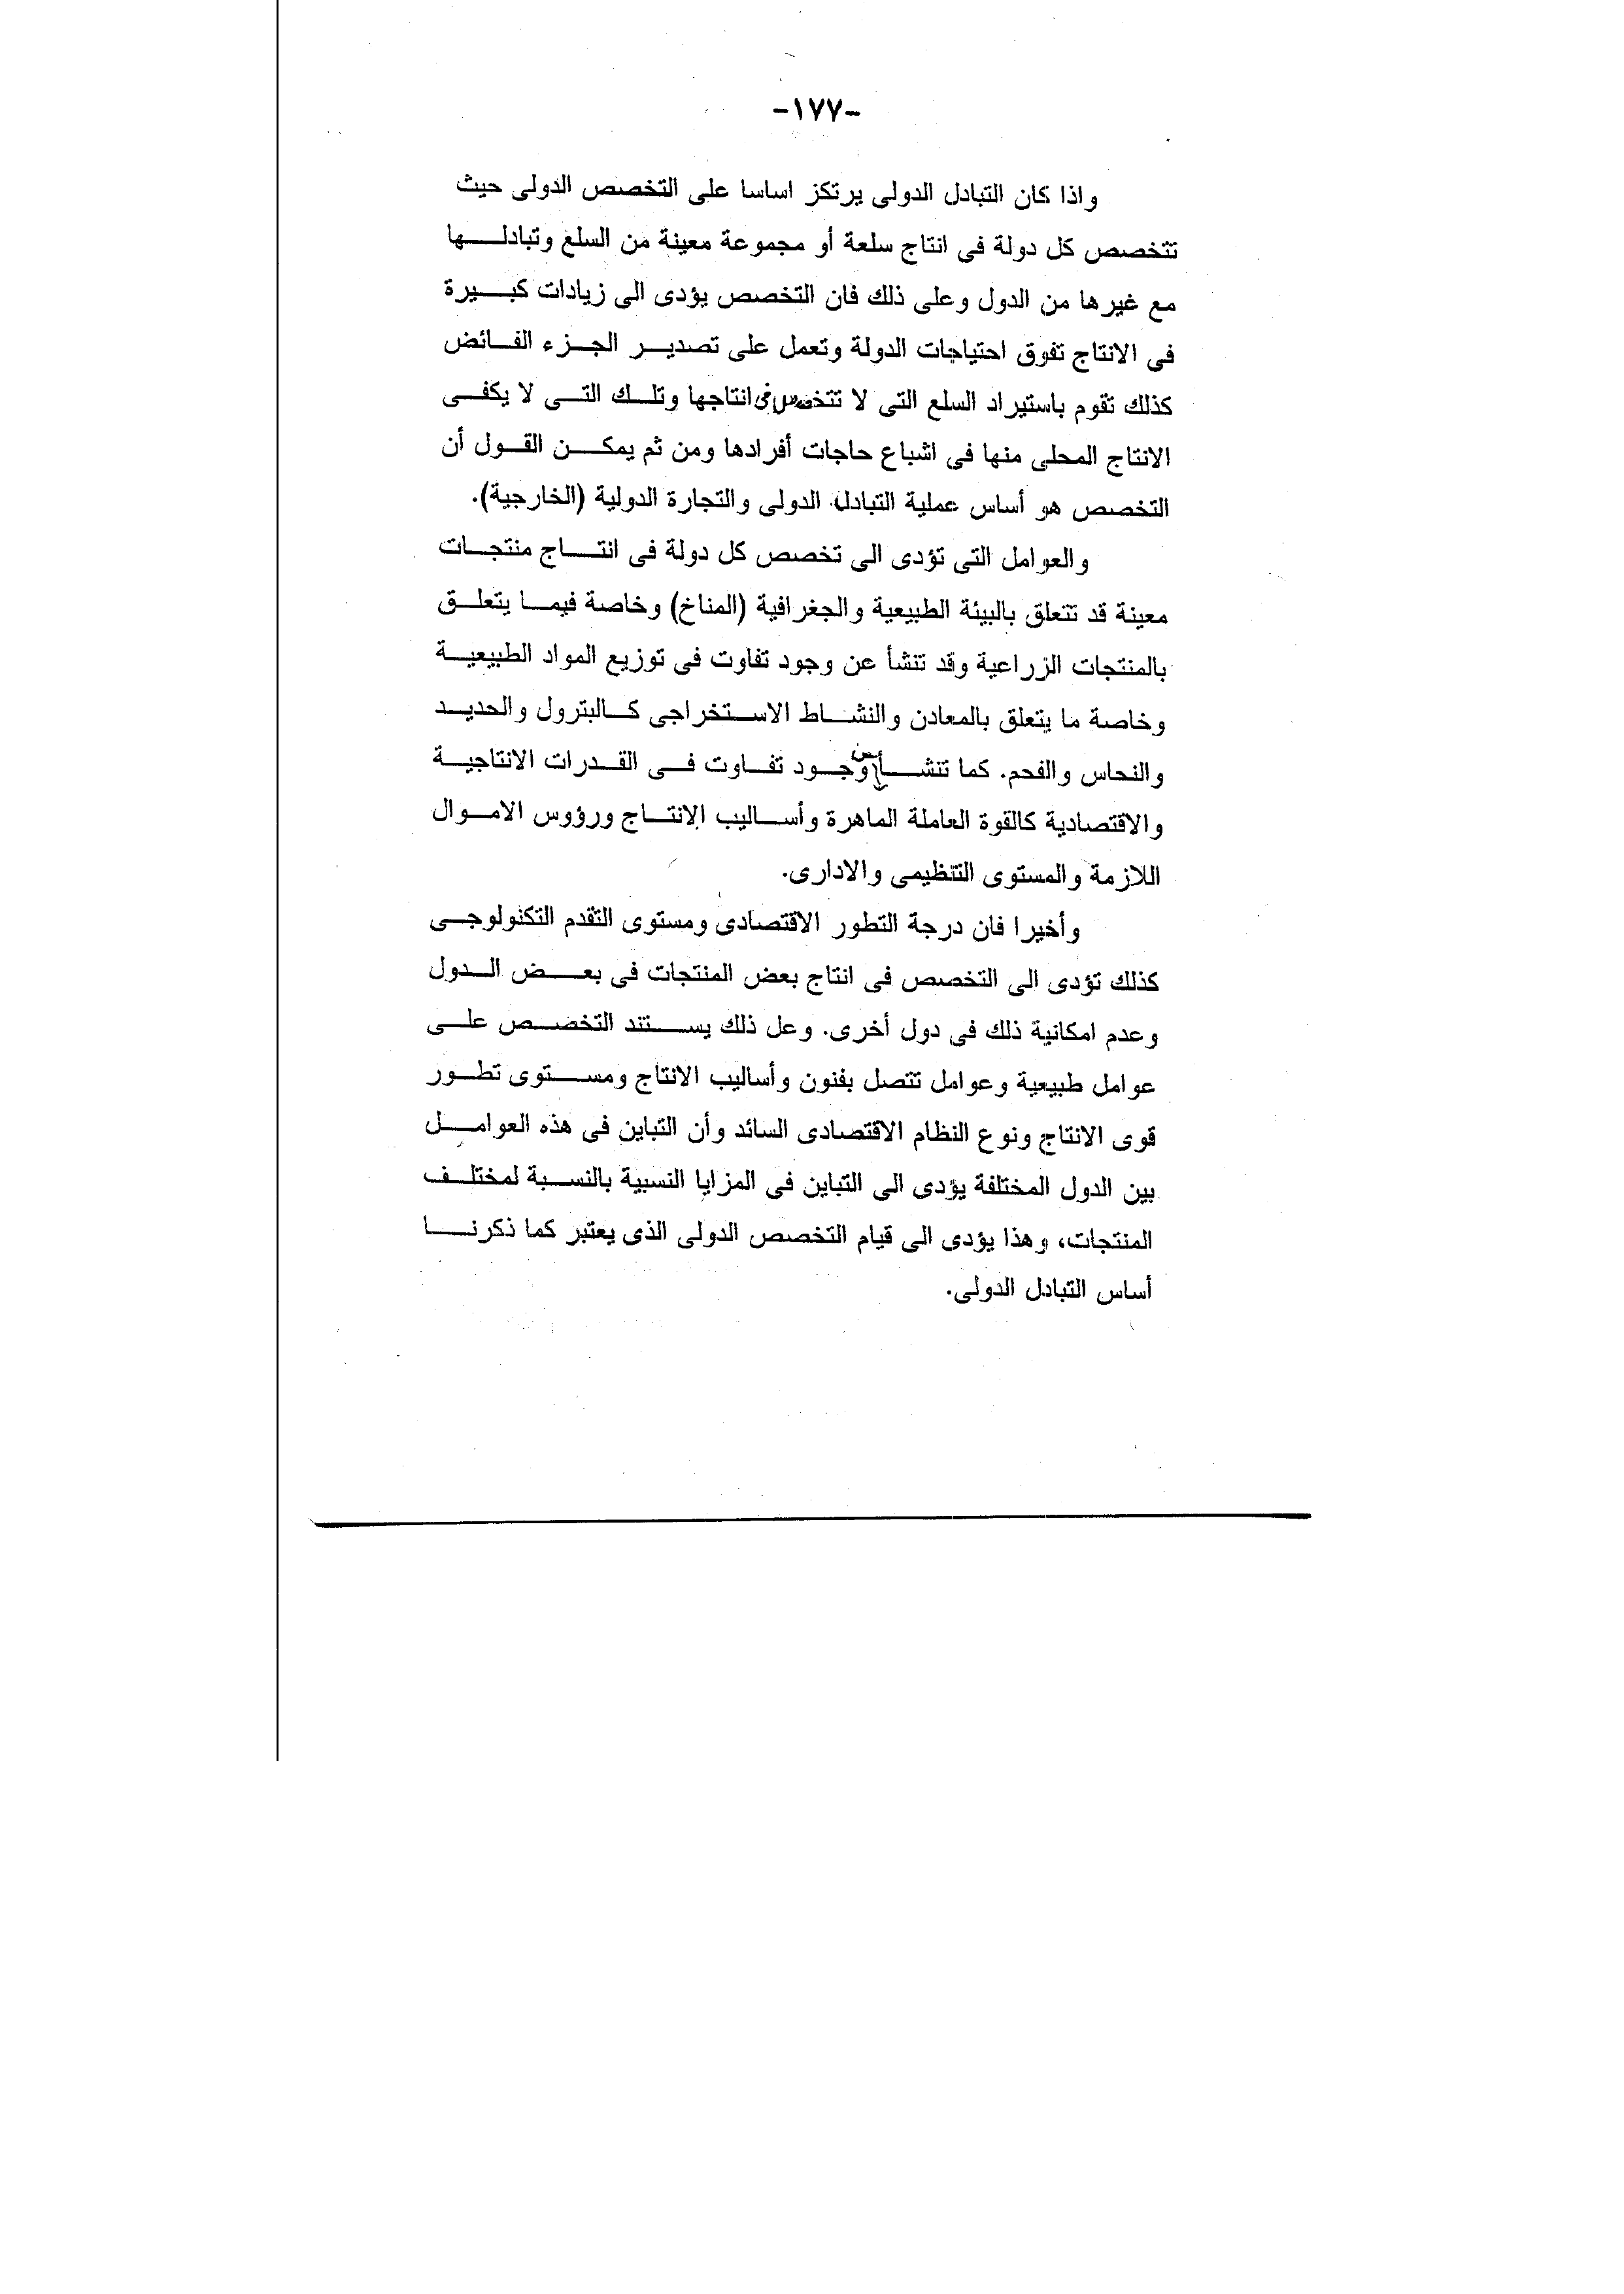 -١٧٧-
واذا كان التبادل الدولى يرتكز اساسا على التخصص الدولى حيث
تتخصص كل دولة فى انتاج سلعة أو مجموعة معينة من السلع وتبادلها
مع غيرها من الدول وعلى ذلك فان التخصص يؤدى الى زيادات كبيرة
فى الانتاج تفوق احتياجات الدولة وتعمل على تصدير الجزء الفائض
كذلك تقوم باستيراد السلع التى لا تتخصص فى انتاجها وتلك التى لا يكفى
الانتاج المحلى منها فى اشباع حاجات أفرادها ومن ثم يمكن القول أن
التخصص هو أساس عملية التبادل الدولى والتجارة الدولية (الخارجية).
والعوامل التى تؤدى الى تخصص كل دولة فى انتاج منتجات
معينة قد تتعلق بالبيئة الطبيعية والجغرافية (المناخ) وخاصة فيما يتعلق
بالمنتجات الزراعية وقد تنشأ عن وجود تفاوت فى توزيع المواد الطبيعية
وخاصة ما يتعلق بالمعادن والنشاط الاستخراجى كالبترول والحديد
والنحاس والفحم. كما تنشأ من وجود تفاوت فى القدرات الانتاجية
والاقتصادية كالقوة العاملة الماهرة وأساليب الإنتاج ورؤوس الاموال
اللازمة والمستوى التنظيمى والادارى.
وأخيرا فان درجة التطور الاقتصادى ومستوى التقدم التكنولوجى
كذلك تؤدى الى التخصص فى انتاج بعض المنتجات فى بعض الدول
وعدم امكانية ذلك فى دول أخرى. وعل ذلك يستند التخصص على
عوامل طبيعية وعوامل تتصل بفنون وأساليب الانتاج ومستوى تطور
قوى الانتاج ونوع النظام الاقتصادى السائد وأن التباين فى هذه العوامل
بين الدول المختلفة يؤدى الى التباين فى المزايا النسبية بالنسبة لمختلف
المنتجات، وهذا يؤدى الى قيام التخصص الدولى الذى يعتبر كما ذكرنا
أساس التبادل الدولى.